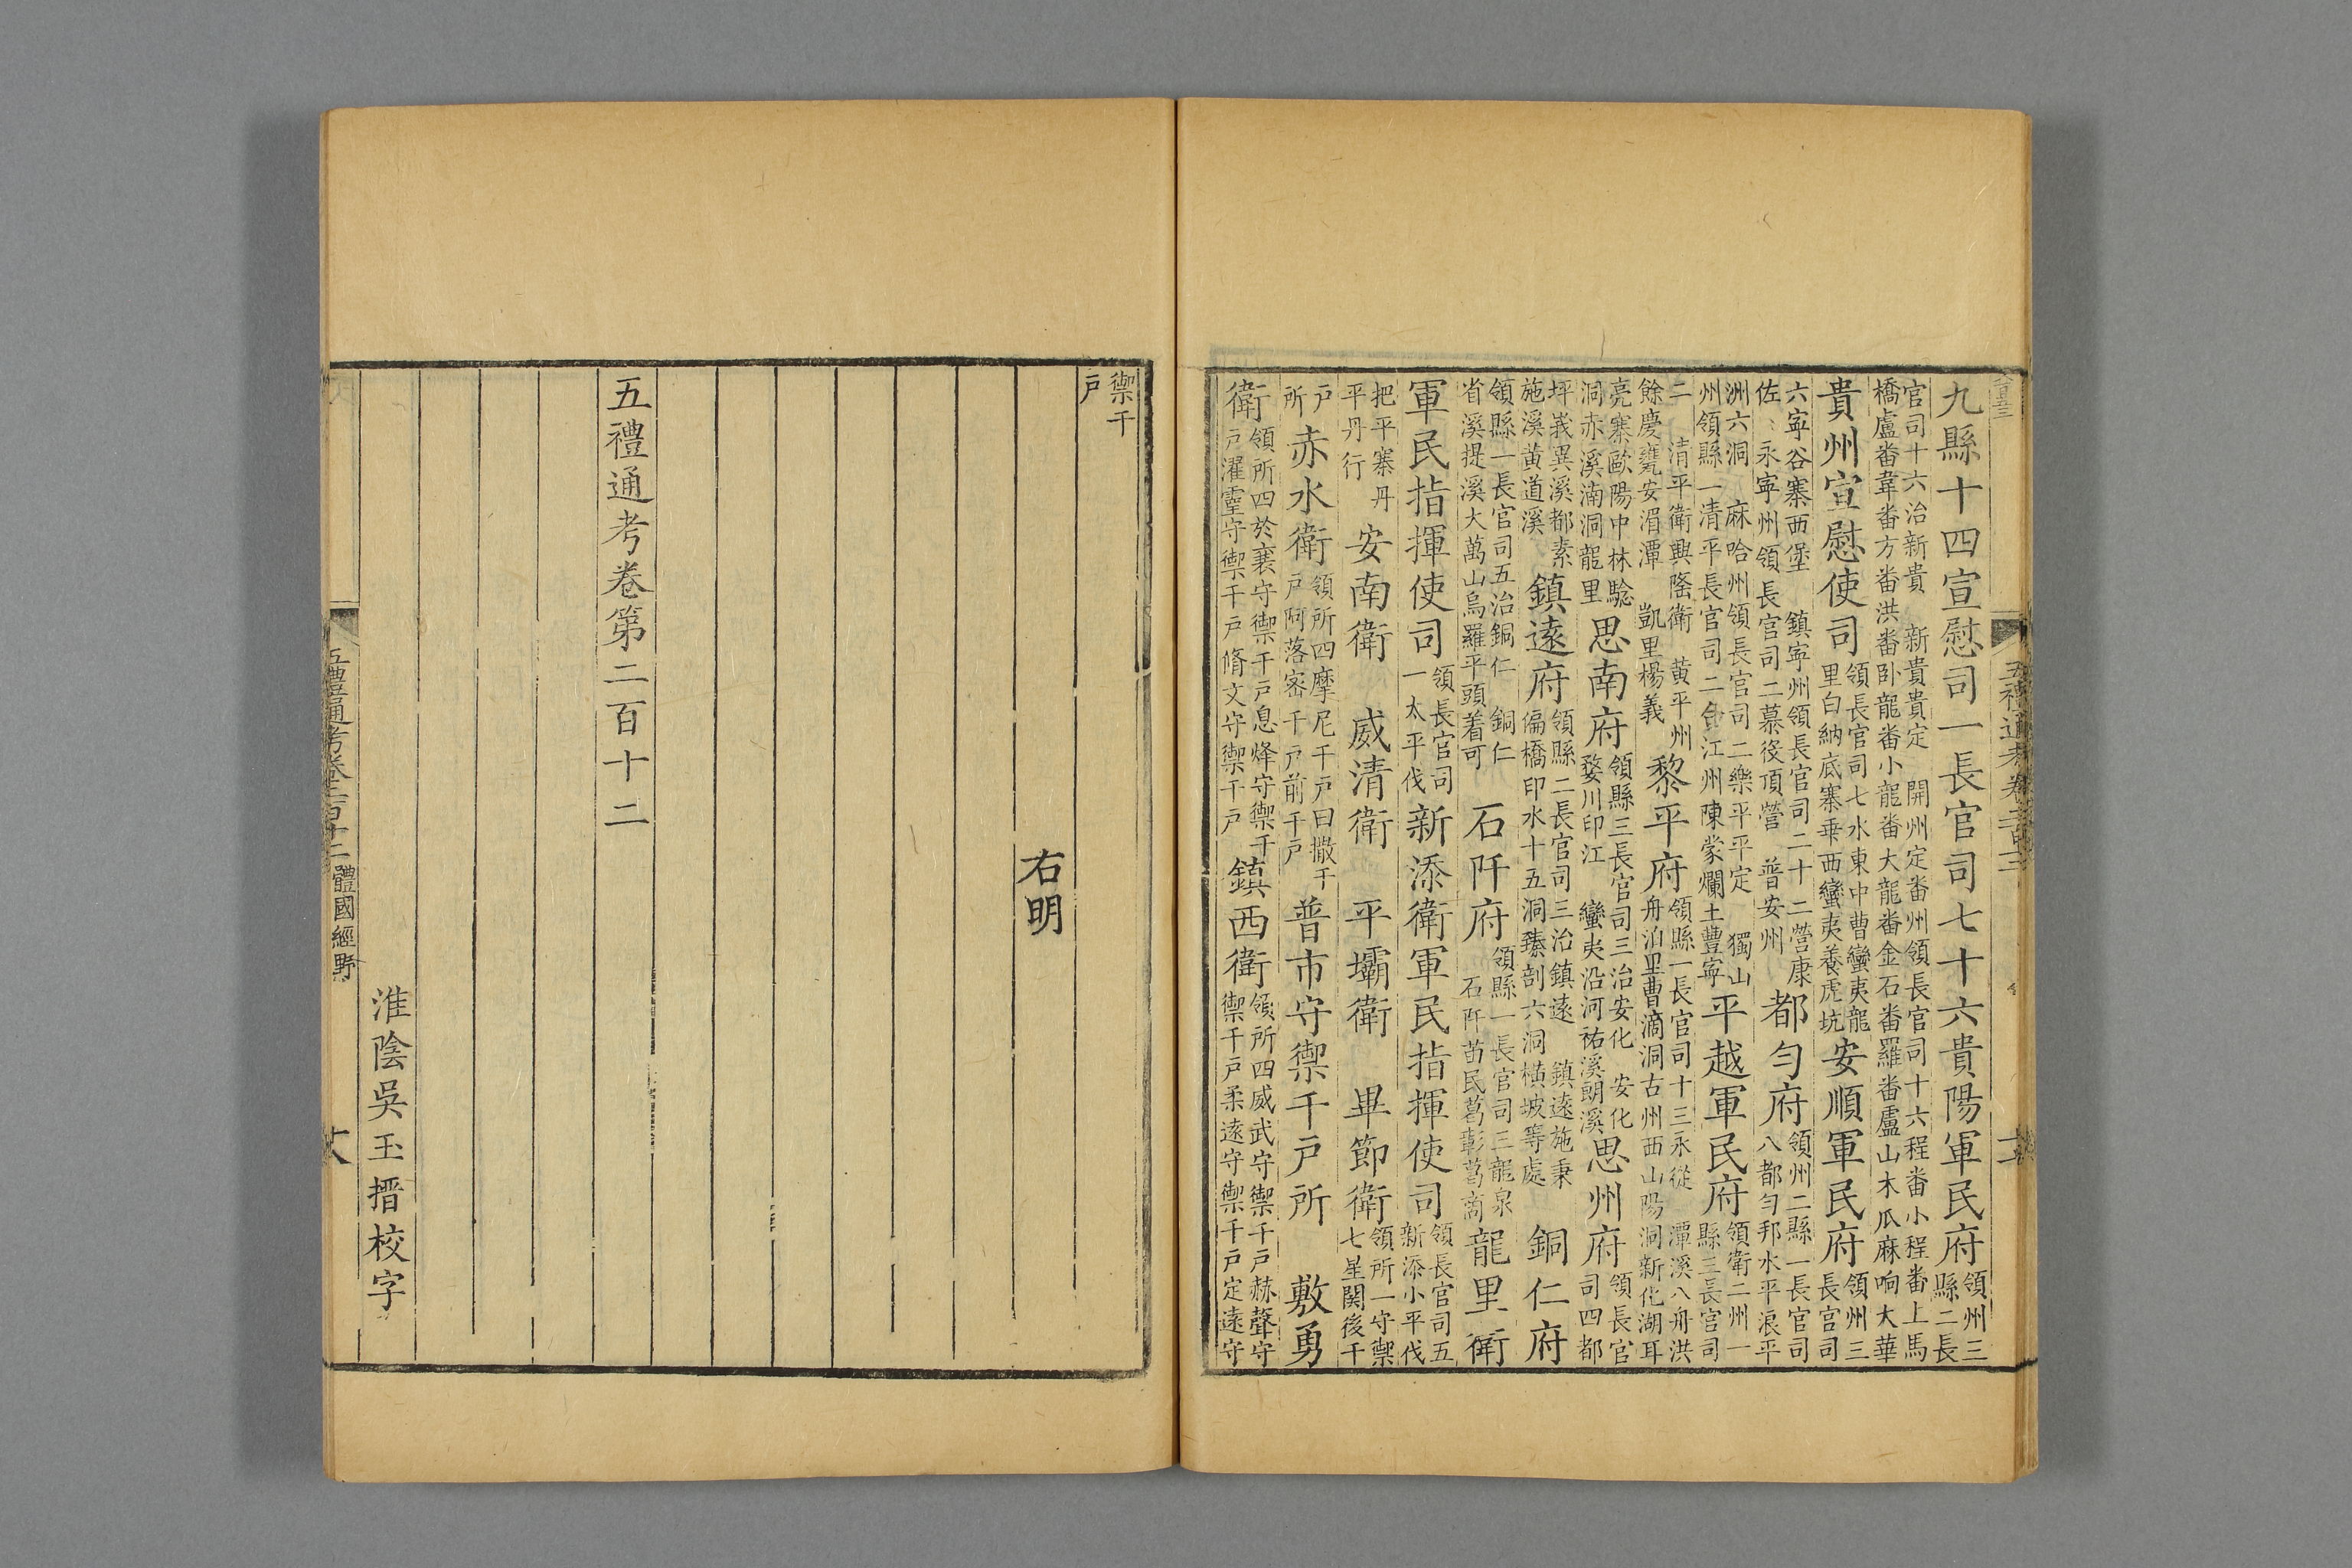 九縣十四宣慰司一長官司七十六貴陽軍民府領州三縣二長
官司十六治新貴 新貴貴定 開州定番州領長官司十六程番小程番上馬
橋盧番韋番方番洪番卧龍番小龍番大龍番金石番羅番盧山木瓜麻响大華
貴州宣慰使司領長官司七水東中曹蠻夷龍里白納底寨乖西蠻夷養虎坑安順軍民府領州三長官司
六寧谷寨西堡 鎮寧州領長官司二十二營康佐 永寧州領長官司二慕役頂營 普安州都勻府領州二縣一長官司八都勻邦水平浪平
洲六洞 麻哈州領長官司二樂平平定 獨山州領縣一清平長官司二合江州陳蒙爛土豐寧平越軍民府領衛二州一縣三長官司
二 清平衛興隆衛 黃平州餘慶甕安湄潭 凱里楊義黎平府領縣一長官司十三永從 潭溪八舟洪舟泊里曹滴洞古州西山陽洞新化湖耳
亮寨歐陽中林驗洞赤溪湳洞龍里思南府領縣三長官司三治安化 安化婺川印江 蠻夷沿河祐溪朗溪思州府領長官司四都
坪峩異溪都素施溪黃道溪鎮遠府領縣二長官司三治鎮遠 鎮遠施秉偏橋印水十五洞臻剖六洞橫坡等處銅仁府
領縣一長官司五治銅仁 銅仁省溪提溪大萬山烏羅平頭着可石阡府領縣一長官司三龍泉石阡苗民葛彰葛商龍里衛
軍民指揮使司領長官司一太平伐新添衛軍民指揮使司領長官司五新添小平伐
把平寨丹平丹行安南衛 威清衛 平壩衛 畢節衛領所一守禦七星關後千
戶所赤水衛領所四摩尼千戶曰撒千戶阿落密千戶前千戶普市守禦千戶所 敷勇
衛領所四於襄守禦千戶息烽守禦千戶濯靈守禦千戶脩文守禦千戶鎮西衛領所四威武守禦千戶赫聲守禦千戶柔遠守禦千戶定遠守
禦千戶
右明
五禮通考卷第二百十二
淮陰吳玉搢校字
五禮通考卷二百十二 體國經野